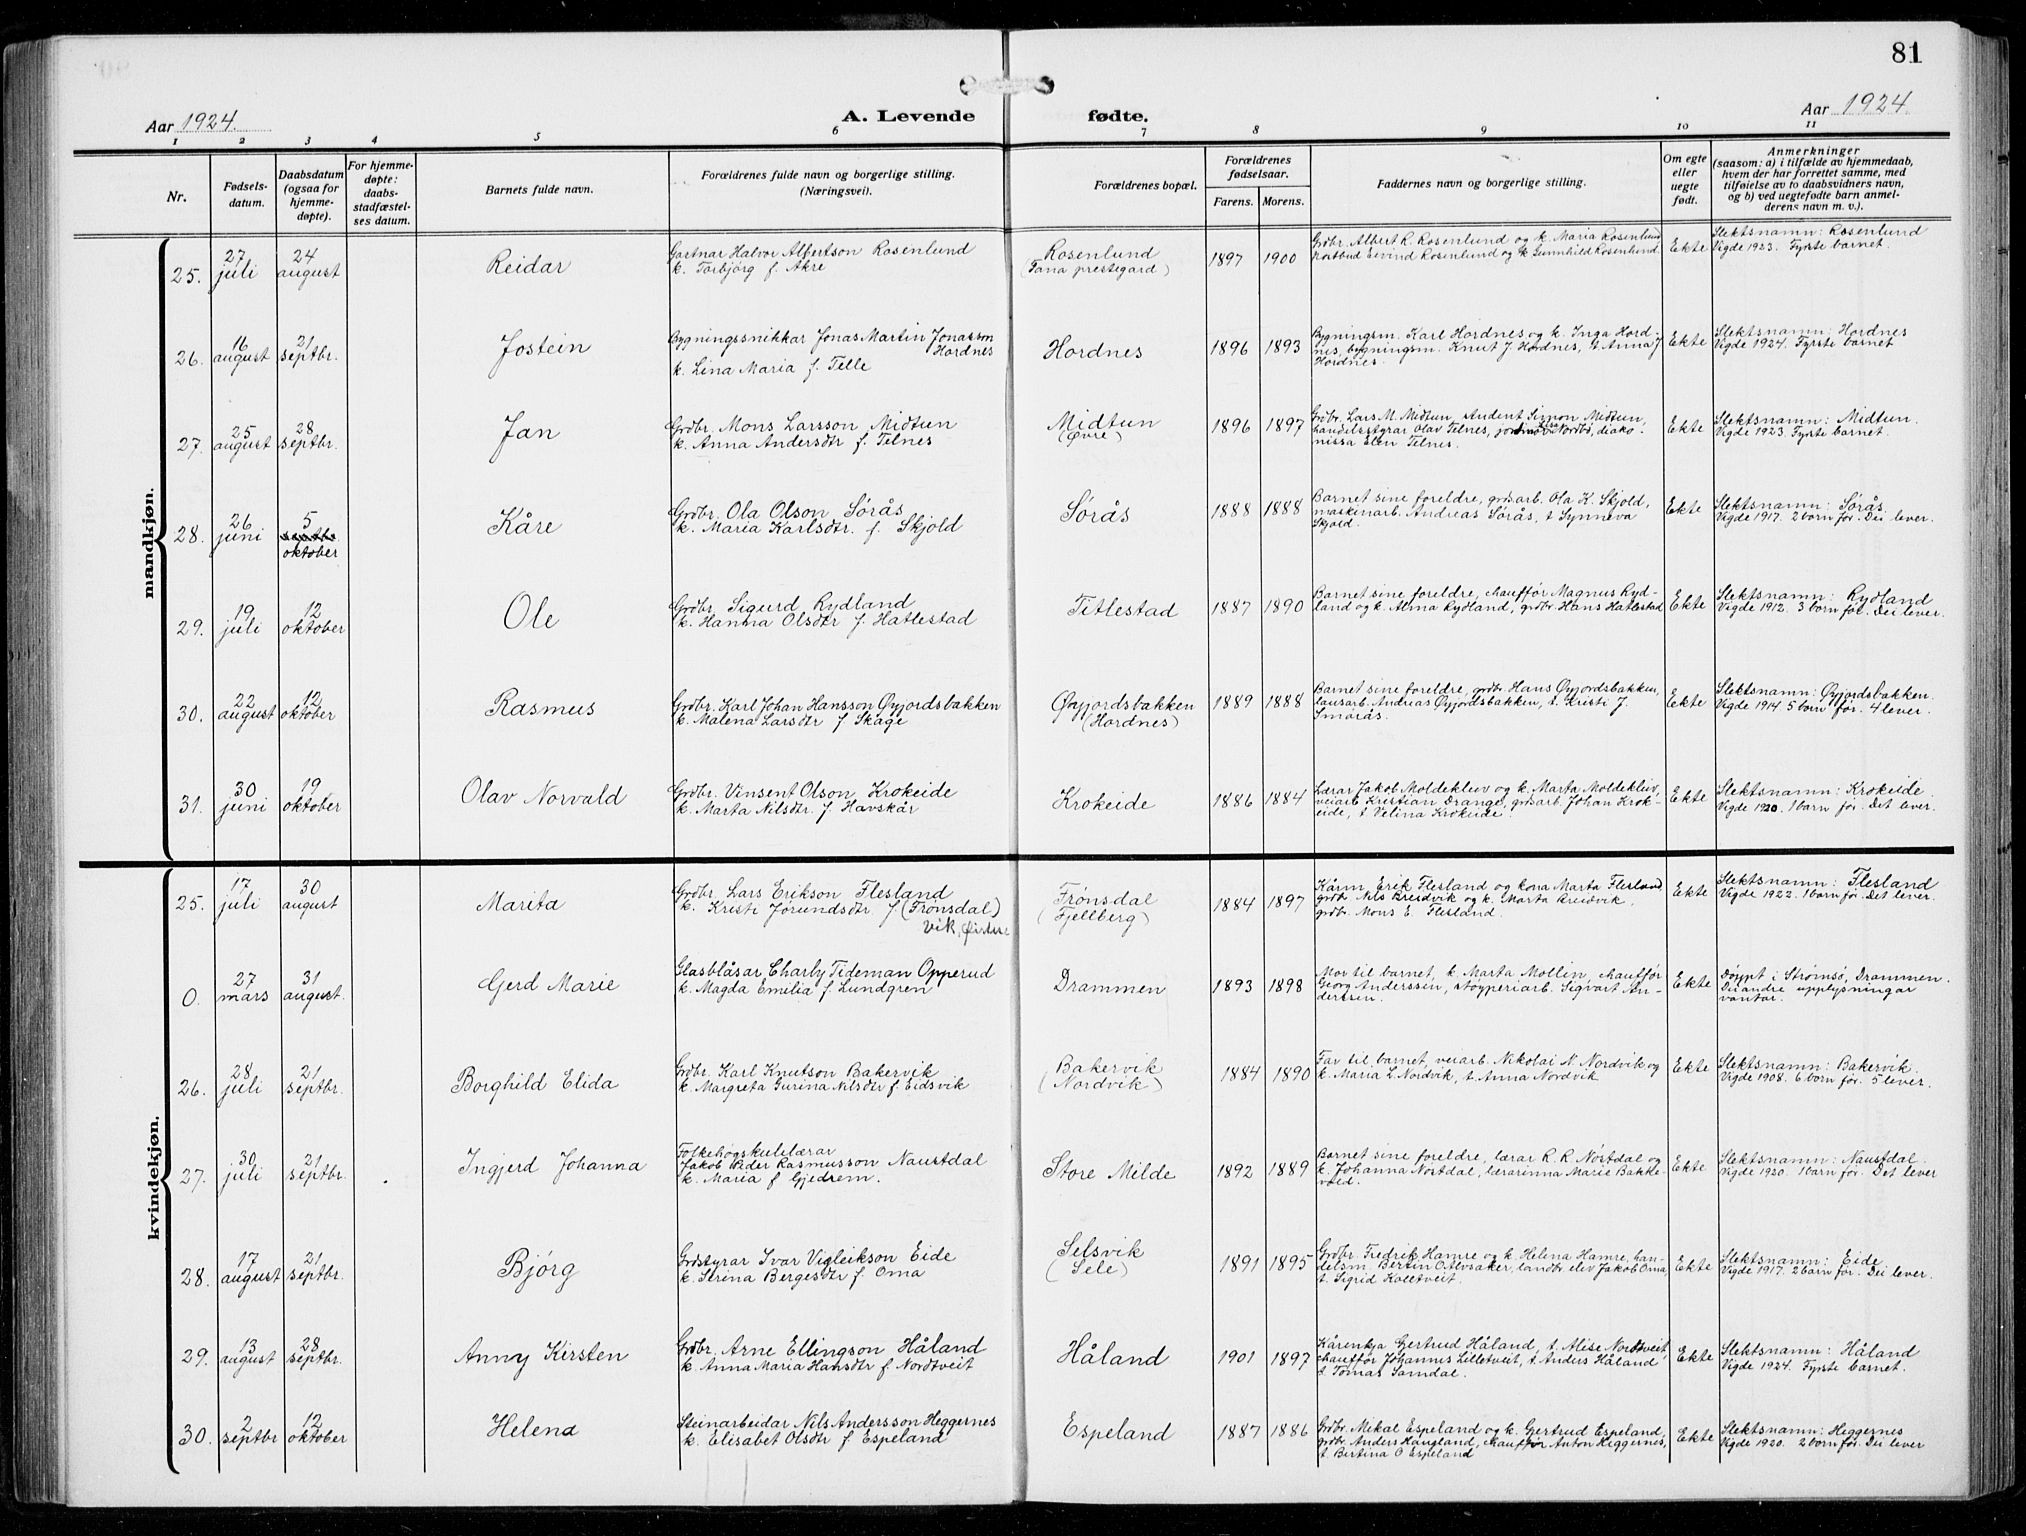 81
Aar 1924.
A. Levende fødte.
Aar 1924.
1 2 3 4 5 6 7 8 9 10 11
Nr.
Fødsels-
datum.
Daabsdatum
(ogsaa for
hjemme-
døpte).
For hjemme-
døpte:
daabs-
stadfæstel-
ses datum.
Barnets fulde navn.
Forældrenes fulde navn og borgerlige stilling.
(Næringsvei).
Forældrenes bopæl.
Forældrenes
fødselsaar.
Farens. Morens.
Faddernes navn og borgerlige stilling.
Om egte
eller
uegte
født.
Anmerkninger
(saasom: a) i tilfælde av hjemmedaab,
hvem der har forrettet samme, med
tilføielse av to daabsvidners navn,
og b) ved uegtefødte barn anmel-
derens navn m. v.).
mandkjøn.
25.
27
juli
24
august
Reidar
Gartnar Halvor Albertson Rosenlund
k. Torbjørg f. Akre
Rosenlund
(Fana prestegard)
1897 1900
Grdbr. Albert R. Rosenlund og k. Maria Rosenlund
Postbud Eivind Rosenlund og k. Gunnhild Rosenlund.
Ekte
Slektsnamn: Rosenlund
Vigde 1923. Fyrste barnet.
26.
16
august
21
septbr.
Jostein
Bygningssnikkar Jonas Martin Jonasson
Hordnes
k. Lina Maria f. Telle
Hordnes
1896 1893
Bygningsm. Karl Hordnes og k. Inga Hord-
nes, bygningsm. Knut J Hordnes, t. Anna J
Hordnes.
Ekte
Slektsnamn: Hordnes
Vigde 1924. Fyrste barnet
27.
25
august
28
septbr.
Jan
Grdbr. Mons Larsson Midtun
k. Anna Andersdtr f. Telnes
Midtun
(Øvre)
1896 1897
Grdbr. Lars M. Midtun, student Simon Midtun,
handelsstyrar Olav Telnes, jordmor Nordbø, diako-
nissa Elen Telnes.
Ekte
Slektsnamn: Midtun.
Vigde 1923. Fyrste barnet.
28.
26
juni
5
septbr.
oktober
Kåre
Grdbr. Ola Olson Sørås
k. Maria Karlsdtr. f. Skjold
Sørås
1888 1888
Barnet sine foreldre, grdsarb. Ola K. Skjold,
maskinarb. Andreas Sørås, t Synneva
Skjold.
Ekte
Slektsnamn: Sørås.
Vigde 1917. 2 born før. Dei lever.
29.
19
juli
12
oktober
Ole
Grdbr. Sigurd Rydland
k. Hanna Olsdtr f. Hatlestad
Titlestad
1887 1890
Barnet sine foreldre, chauffør Magnus Ryd-
land og k. Alma Rydland, grdbr. Hans Hatlestad
Ekte
Slektsnamn: Rydland
Vigde 1912. 3 born før. Dei lever.
30.
22
august
12
oktober
Rasmus
Grdbr. Karl Johan Hansson Øyjordsbakken
k. Malena Larsdtr f Skage
Øyjordsbakken
(Hordnes)
1889 1888
Barnet sine foreldre, grdbr. Hans Øyjordsbakken,
lausarb. Andreas Øyjordsbakken, t. Kristi J.
Smørås.
Ekte
Slektsnamn: Øyjordsbakken.
Vigde 1914 5 born før. 4 lever.
31.
30
juni
19
oktober
Olav Norvald
Grdbr. Vinsent Olson Krokeide
k. Marta Nilsdtr. f. Havskår
Krokeide
1886 1884
Lærar Jakob Moldekleiv og k. Marta Moldekleiv,
veiarb. Kristian Drange, grdsarb. Johan Krok-
eide, t Velina Krokeide.
Ekte
Slektsnamn: Krokeide.
Vigde 1920. 1 barn før. Det lever.
kvindekjøn.
25.
17
juli
30
august
Marita
Grdbr. Lars Erikson Flesland
k. Kristi Jørundsdtr f (Frønsdal)
Vik,
Frønsdal
(Fjellberg)
1884 1897
Kårm. Erik Flesland og kona Marta Flesland,
grdbr. Nils Breidvik og k. Marta Breidvik,
grdbr. Mons E. Flesland.
Ekte
Slektsnamn: Flesland
Vigde 1922. 1 barn før. Det lever.
0.
27
mars
31
august.
Gerd Marie
Glasblåsar Charly Tideman Opperud
k. Magda Emilia f. Lundgren
Drammen
1893 1898
Mor til barnet, k. Marta Mollin, chauffør
Georg Anderssen, støyperiarb. Sigvart An-
derssen.
Ekte
Døypt i Strømsø, Drammen.
Dei andre upplysningar
vantar.
26.
28
juli
21
septbr.
Borghild Elida
Grdbr. Karl Knutson Bakervik
k. Margreta Gurina Nilsdtr f. Eidsvik
Bakervik
(Nordvik)
1884 1890
Far til barnet, veiarb. Nikolai N. Nordvik og
k. Maria L Nordvik, t. Anna Nordvik
Ekte
Slektsnamn: Bakervik.
Vigde 1908. 6 born før. 5 lever.
27.
30
juli
21
septbr.
Ingjerd Johanna
Folkehøgskulelærar
Jakob Peder Rasmusson Naustdal
k. Maria f Gjedrem.
Store Milde
1892 1889
Barnet sine foreldre, lærar R. R. Nøstdal og
k. Johanna Nøstdal, lærarinna Marie Bakke-
vold.
Ekte
Slektsnamn: Naustdal.
Vigde 1920. 1 barn før. Det lever
28.
17
august
21
septbr.
Bjørg
Grdstyrar Ivar Vigleikson Eide
k. Serina Bergesdtr f. Oma
Selsvik
(Sele)
1891 1895
Grdbr. Fredrik Hamre og k. Helena Hamre, han-
delsm. Bertin Ottervsaker, landbr. elev Jakob Oma,
t. Sigrid Kolltveit.
Ekte
Slektsnamn: Eide.
Vigde 1917. 2 born før. Dei lever.
29.
13
august
28
septbr.
Anny Kirsten
Grdbr. Arne Ellingson Håland
k. Anna Maria Hansdtr f. Nordtveit
Håland
1901 1897
Kårenkja Gjertrud Håland, t. Alise Nordtveit,
chauffør Johannes Lilletveit, t. Anders Håland
t. Tomas Samdal.
Ekte
Slektsnamn: Håland
Vigde 1924. Fyrste barnet.
30.
2
septbr
12
oktober
Helena
Steinarbeidar Nils Andersson Heggernes
k. Elisabet Olsdtr f. Espeland
Espeland
1887 1886
Grdbr. Mikal Espeland og k. Gjertrud Espeland,
grdbr. Anders Haugland, chauffør Anton Heggernes,
t. Bertina O Espeland
Ekte
Slektsnamn: Heggernes
Vigde 1920. 2 born før. Dei lever